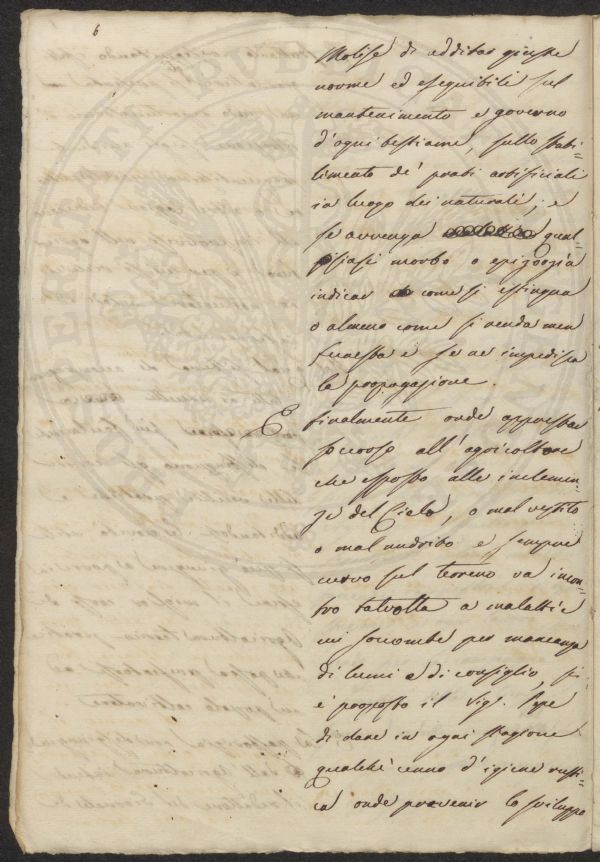 6
Molise di additar giuste
norme ed eseguibili sul
mantenimento e governo
d'ogni bestiame, sullo stabi-
limento de' prati artificiali
in luogo dei naturali; e
se avvenga qual-
siasi morbo o epizoozia
indicar come si estingua
o almeno come si renda men
funesta e se ne impedisca
la propagazione.
E finalmente onde apprestar
soccorso all'agricoltore
che esposto alle inclemen-
ze del Cielo, o mal vestito
o mal nudrito e sempre
curvo sul terreno va incon-
tro talvolta a malattie
cui soccombe per mancanza
di lumi e di consiglio, si
è proposto il Sig.r Pepe
di dare in ogni stagione
qualche cenno d'igiene rusti-
ca onde prevenir lo sviluppo